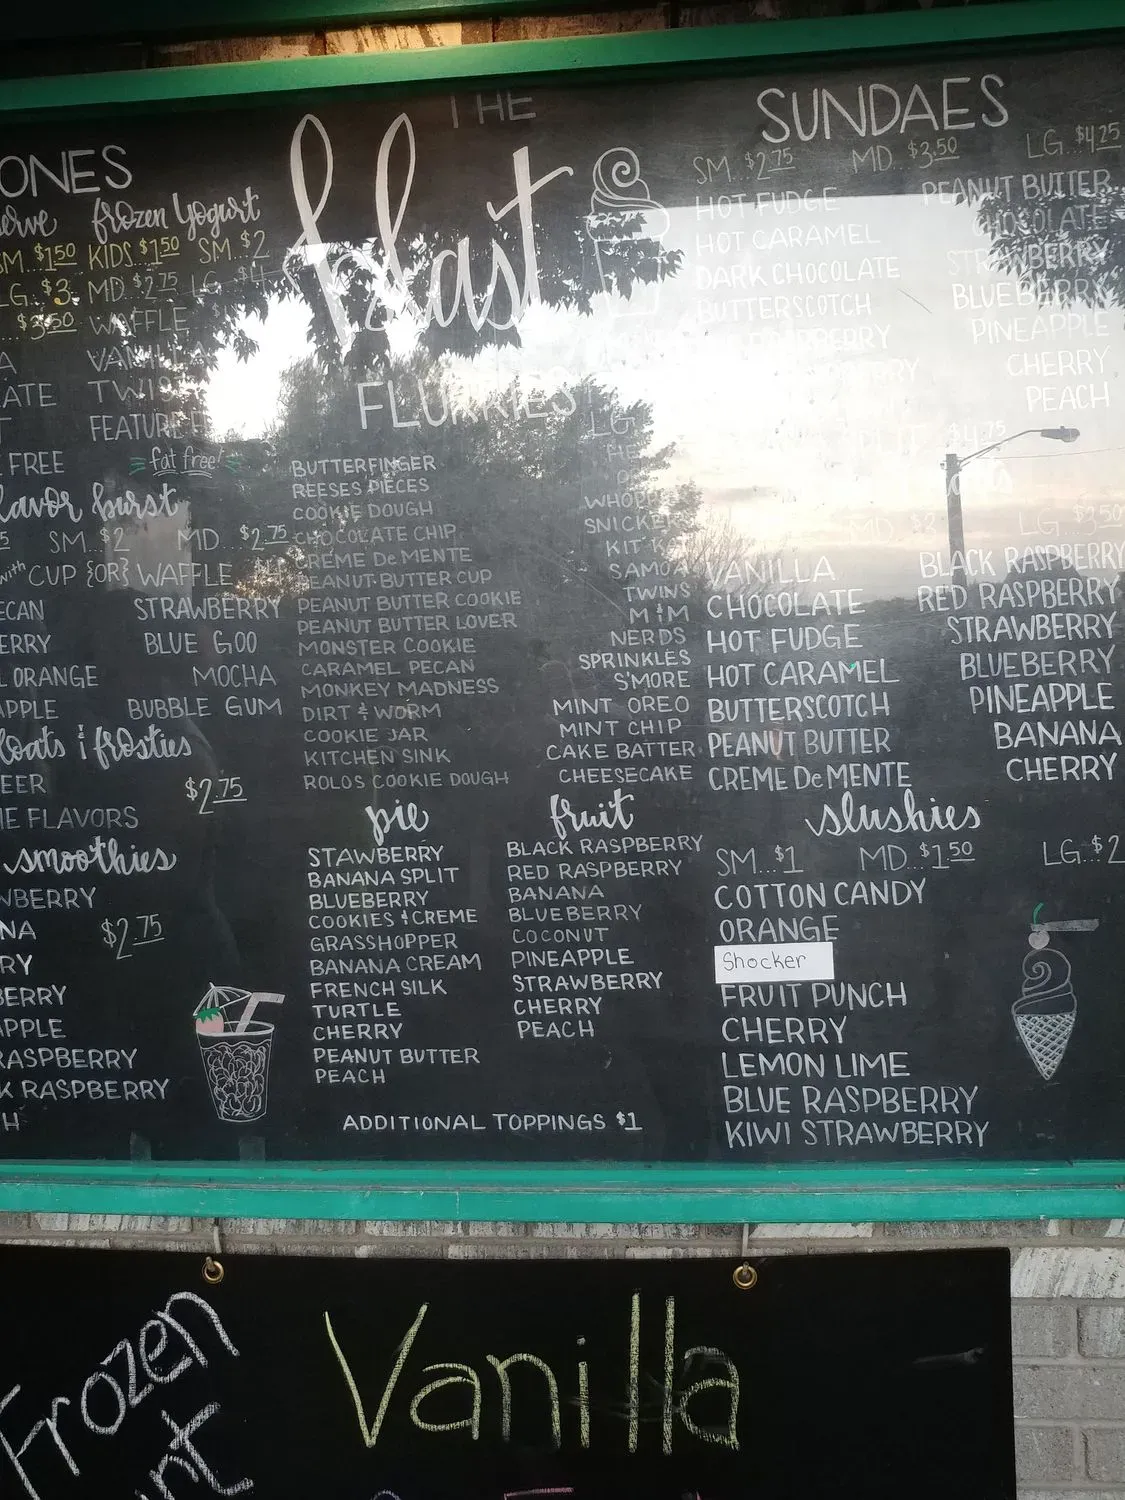 THE
blast
ONES
erve frozen yogurt
SM...$1.50 KIDS $1.50 SM...$2
LG...$3 MD...$2.75 LG...$4
$3.50 WAFFLE
VANILLA
ATE TWIST
FEATURE
FREE fat free!
lavor burst
SM...$2 MD...$2.75
with CUP {OR} WAFFLE
ECAN STRAWBERRY
ERRY BLUE GOO
ORANGE MOCHA
APPLE BUBBLE GUM
loats & frosties
EER $2.75
ME FLAVORS
smoothies
WBERRY
NA $2.75
RY
BERRY
APPLE
RASPBERRY
K RASPBERRY
H
FLURRIES
LG
BUTTERFINGER
REESES PIECES
COOKIE DOUGH
CHOCOLATE CHIP
CREME De MENTE
PEANUT BUTTER CUP
PEANUT BUTTER COOKIE
PEANUT BUTTER LOVER
MONSTER COOKIE
CARAMEL PECAN
MONKEY MADNESS
DIRT & WORM
COOKIE JAR
KITCHEN SINK
ROLOS COOKIE DOUGH
WHOPP
SNICKERS
KIT K
SAMOA
TWINS
M&M
NERDS
SPRINKLES
S'MORE
MINT OREO
MINT CHIP
CAKE BATTER
CHEESECAKE
pie
STAWBERRY
BANANA SPLIT
BLUEBERRY
COOKIES & CREME
GRASSHOPPER
BANANA CREAM
FRENCH SILK
TURTLE
CHERRY
PEANUT BUTTER
PEACH
fruit
BLACK RASPBERRY
RED RASPBERRY
BANANA
BLUEBERRY
COCONUT
PINEAPPLE
STRAWBERRY
CHERRY
PEACH
ADDITIONAL TOPPINGS $1
SUNDAES
SM...$2.75 MD...$3.50 LG...$4.25
HOT FUDGE
HOT CARAMEL
DARK CHOCOLATE
BUTTERSCOTCH
PEANUT BUTTER
CHOCOLATE
STRAWBERRY
BLUEBERRY
PINEAPPLE
CHERRY
PEACH
$4.75
MD LG...$3.50
VANILLA
CHOCOLATE
HOT FUDGE
HOT CARAMEL
BUTTERSCOTCH
PEANUT BUTTER
CREME De MENTE
BLACK RASPBERRY
RED RASPBERRY
STRAWBERRY
BLUEBERRY
PINEAPPLE
BANANA
CHERRY
slushies
SM...$1 MD...$1.50 LG...$2
COTTON CANDY
ORANGE
Shocker
FRUIT PUNCH
CHERRY
LEMON LIME
BLUE RASPBERRY
KIWI STRAWBERRY
Frozen
Vanilla